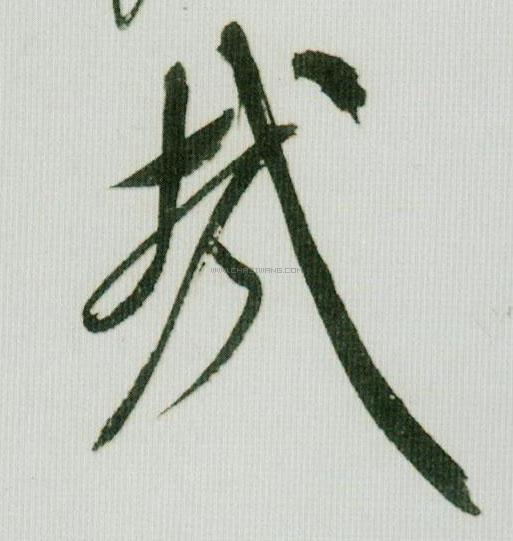 拔
WWW.CHAZIWANG.COM